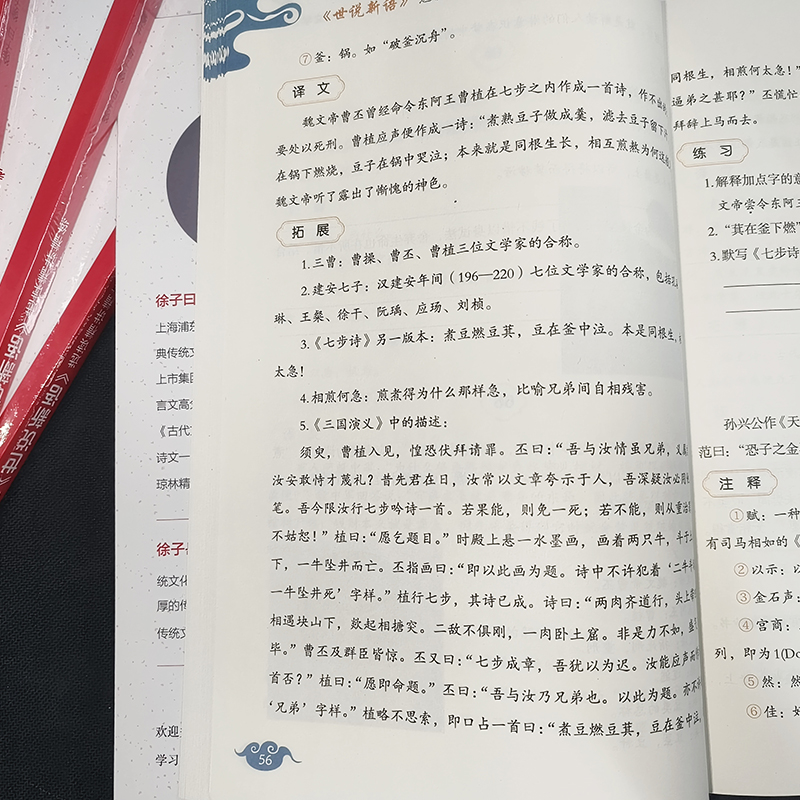 《世说新语》
⑦釜：锅。如“破釜沉舟”。
译文
魏文帝曹丕曾经命令东阿王曹植在七步之内作成一首诗，作不出
要处以死刑。曹植应声便作成一诗：“煮熟豆子做成羹，滤去豆子留下
在锅下燃烧，豆子在锅中哭泣；本来就是同根生长，相互煎熬为何这
魏文帝听了露出了惭愧的神色。
拓展
1.三曹：曹操、曹丕、曹植三位文学家的合称。
2.建安七子：汉建安年间（196—220）七位文学家的合称，包括孔
琳、王粲、徐干、阮瑀、应玚、刘桢。
3.《七步诗》另一版本：煮豆燃豆萁，豆在釜中泣。本是同根生，
太急！
4.相煎何急：煎煮得为什么那样急，比喻兄弟间自相残害。
5.《三国演义》中的描述：
须臾，曹植入见，惶恐伏拜请罪。丕曰：“吾与汝情虽兄弟，义
汝安敢恃才蔑礼？昔先君在日，汝常以文章夸示于人，吾深疑汝必用
笔。吾今限汝行七步吟诗一首。若果能，则免一死；若不能，则从重治
不姑恕！”植曰：“愿乞题目。”时殿上悬一水墨画，画着两只牛，斗于
下，一牛坠井而亡。丕指画曰：“即以此画为题。诗中不许犯着‘二牛
一牛坠井死’字样。”植行七步，其诗已成。诗曰：“两肉齐道行，头上
相遇块山下，欻起相搪突。二敌不俱刚，一肉卧土窟。非是力不如，盛
毕。”曹丕及群臣皆惊。丕又曰：“七步成章，吾犹以为迟。汝能应声而
首否？”植曰：“愿即命题。”丕曰：“吾与汝乃兄弟也。以此为题。亦不
‘兄弟’字样。”植略不思索，即口占一首曰：“煮豆燃豆萁，豆在釜中泣，
56
同根生，相煎何太急！”
逼弟之甚耶？”丕慌忙
拜辞上马而去。
练习
1.解释加点字的意
文帝尝令东阿王
2.“萁在釜下燃”
3.默写《七步诗
孙兴公作《天
范曰：“恐子之金
注释
①赋：一种
有司马相如的《
②以示：以
③金石声：
④宫商：
列，即为1(Do
⑤然：然
⑥佳：好
徐子曰
上海浦东
典传统文
上市集团
言文高分
《古代文
诗文一
琼林精
徐子
统文化
厚的传
传统文
欢迎
学习